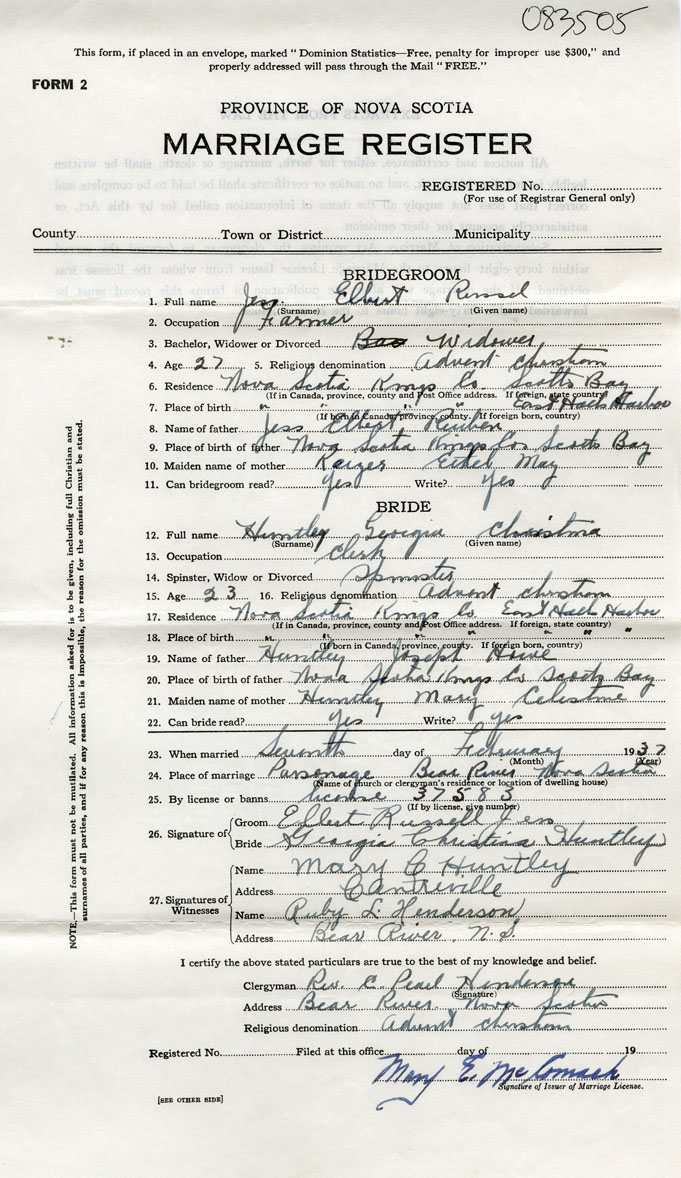 083505
This form, if placed in an envelope, marked "Dominion Statistics—Free, penalty for improper use $300," and
properly addressed will pass through the Mail "FREE."
FORM 2
PROVINCE OF NOVA SCOTIA
MARRIAGE REGISTER
REGISTERED No.
(For use of Registrar General only)
County Town or District Municipality
BRIDEGROOM
1. Full name Jess Elbert Russel
(Surname) (Given name)
2. Occupation Farmer
3. Bachelor, Widower or Divorced Widower
4. Age 27 5. Religious denomination Advent Christian
6. Residence Nova Scotia Kings Co Scotts Bay
(If in Canada, province, county and Post Office address. If foreign, state country)
7. Place of birth " " " East Halls Harbor
(If born in Canada, province, county. If foreign born, country)
8. Name of father Jess Elbert Reuben
9. Place of birth of father Nova Scotia Kings Co Scots Bay
10. Maiden name of mother Keizer Ethel May
11. Can bridegroom read? Yes Write? Yes
BRIDE
12. Full name Huntley Georgia Christina
(Surname) (Given name)
13. Occupation Clerk
14. Spinster, Widow or Divorced Spinster
15. Age 23 16. Religious denomination Advent Christian
17. Residence Nova Scotia Kings Co East Halls Harbor
(If in Canada, province, county and Post Office address. If foreign, state country)
18. Place of birth " " " " " " "
(If born in Canada, province, county. If foreign born, country)
19. Name of father Huntley Joseph Howe
20. Place of birth of father Nova Scotia Kings Co Scots Bay
21. Maiden name of mother Huntley Mary Celestine
22. Can bride read? Yes Write? Yes
23. When married Seventh day of February 1937
(Month) (Year)
24. Place of marriage Parsonage Bear River Nova Scotia
(Name of church or clergyman's residence or location of dwelling house)
25. By license or banns license 37583
(If by license, give number)
26. Signature of Groom Elbert Russell Jess
Bride Georgia Christina Huntley
27. Signatures of Witnesses Name Mary C Huntley
Address Centreville
Name Ruby L. Henderson
Address Bear River, N.S.
I certify the above stated particulars are true to the best of my knowledge and belief.
Clergyman Rev. C. Pearl Henderson
(Signature)
Address Bear River Nova Scotia
Religious denomination Advent Christian
Registered No. Filed at this office day of 19
Mary E. McCormack
Signature of Issuer of Marriage License.
[SEE OTHER SIDE]
NOTE.—This form must not be mutilated. All information asked for is to be given, including full Christian and
surnames of all parties, and if for any reason this is impossible, the reason for the omission must be stated.